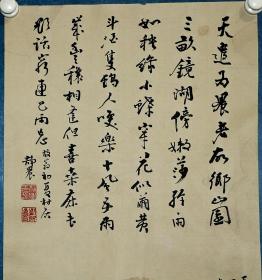 天遣為農老故鄉山園
三畝鏡湖傍嫩莎經雨
如秧綠小蝶穿花似繭黃
斗酒隻鷄人笑樂十風五雨
歲豐穰相逢但喜桑麻長
欲話窮通已兩忘 放翁初夏村居
靜農